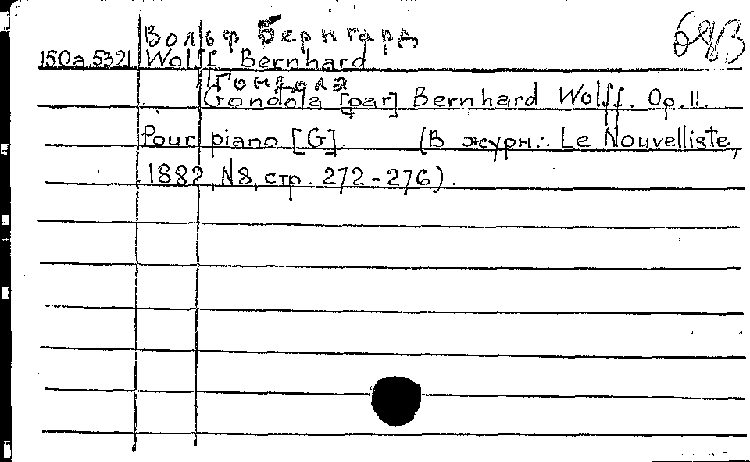 Вольф Бернгард
683
150a.5321 Wolff Bernhard
Гондола
Gondola [par] Bernhard Wolff. Op.11.
Pour piano [G] (В журн.: Le Nouvelliste,
1882, N8, стр. 272-276).